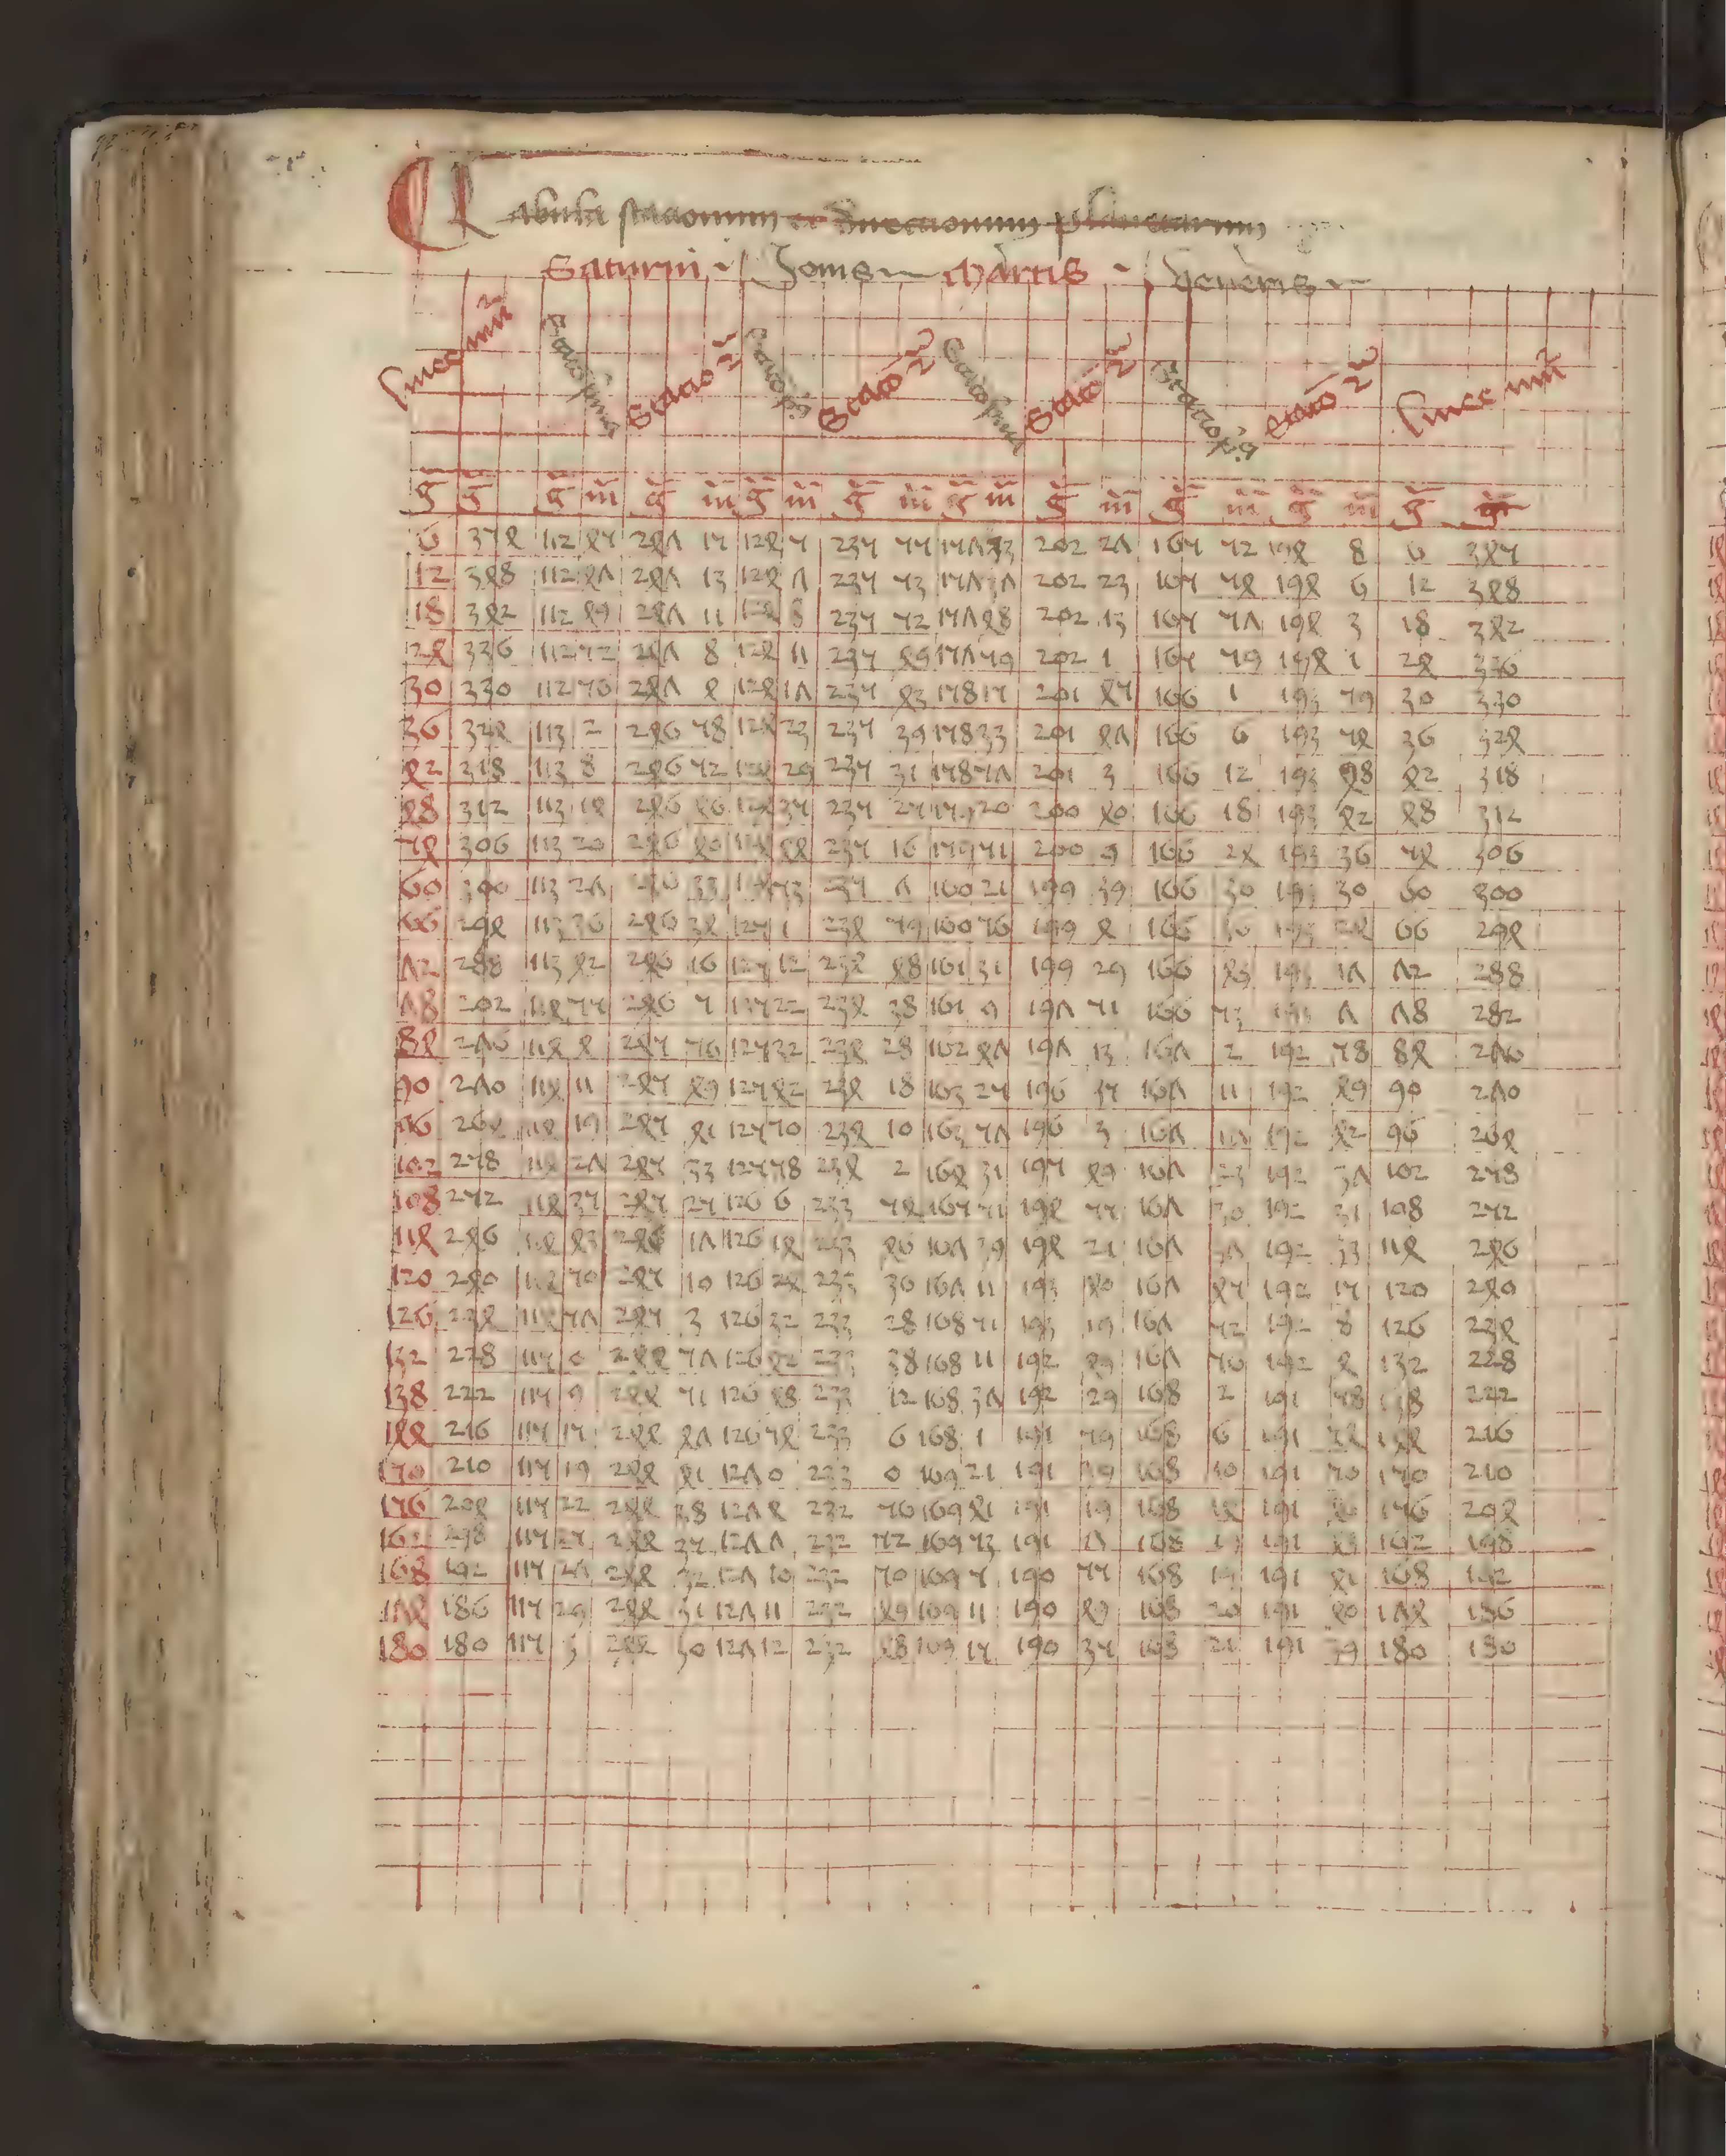 Tabula stacionum et direccionum planetarum
Saturni Jovis Martis Veneris
linee nũi Stacio prima Stacio 2ª Stacio pª Stacio 2ª Stacio prima Stacio 2ª Stacio pª Stacio 2ª linee nũi
g̃ g̃ g̃ m̃ g̃ m̃ g̃ m̃ g̃ m̃ g̃ m̃ g̃ m̃ g̃ m̃ g̃ m̃ g̃ g̃
6 354 112 45 247 15 124 5 235 55 157 33 202 27 165 52 194 8 6 354
12 348 112 47 247 13 124 7 235 53 157 37 202 23 165 54 194 6 12 348
18 342 112 49 247 11 124 8 235 52 157 48 202 13 165 57 194 3 18 342
24 336 112 52 247 8 124 11 235 49 157 59 202 1 165 59 194 1 24 336
30 330 112 56 247 4 124 17 235 43 158 15 201 45 166 1 193 59 30 330
36 324 113 2 246 58 124 23 235 39 158 33 201 47 166 6 193 54 36 324
42 318 113 8 246 52 124 29 235 31 158 57 201 3 166 12 193 98 42 318
48 312 113 14 246 46 124 35 235 25 159 20 200 40 166 18 193 42 48 312
54 306 113 20 246 40 124 44 235 16 159 51 200 9 166 24 193 36 54 306
60 300 113 27 246 33 124 53 235 7 160 21 199 39 166 30 193 30 60 300
66 294 113 36 246 34 125 1 234 59 160 56 199 4 166 36 193 24 66 294
72 288 113 42 246 16 125 12 234 48 161 31 199 29 166 43 193 17 72 288
78 282 114 55 246 5 125 22 234 38 161 9 197 51 166 53 193 7 78 282
84 276 114 4 245 56 125 32 234 28 162 47 197 13 167 2 192 58 84 276
90 270 114 11 245 49 125 42 234 18 163 25 196 35 167 11 192 49 90 270
96 264 114 19 245 41 125 50 234 10 163 57 196 3 167 17 192 42 96 264
102 258 114 27 245 33 125 58 234 2 164 31 195 49 167 23 192 37 102 258
108 252 114 35 245 25 126 6 233 54 165 51 194 55 167 30 192 31 108 252
114 246 114 43 246 17 126 14 233 46 167 39 194 21 167 37 192 33 114 246
120 240 114 50 245 10 126 24 233 36 167 11 193 40 167 45 192 15 120 240
126 234 114 57 245 3 126 32 233 28 168 51 193 19 167 52 192 8 126 234
132 228 115 0 244 57 126 42 233 38 168 11 192 49 167 56 192 4 132 228
138 222 115 9 244 51 126 48 233 12 168 37 192 29 168 2 191 58 138 222
144 216 115 15 244 47 126 54 233 6 168 1 191 59 168 6 191 54 144 216
150 210 115 19 244 41 127 0 233 0 169 21 191 39 168 10 191 50 150 210
156 204 115 22 244 38 127 4 232 56 169 41 191 19 168 14 191 46 156 204
162 298 115 25 244 35 127 7 232 52 169 53 191 7 168 17 191 43 162 198
168 192 115 27 244 32 127 10 232 50 169 5 190 55 168 19 191 41 168 192
174 186 115 29 244 31 127 11 232 49 169 11 190 49 168 20 191 40 174 186
180 180 115 3 244 30 127 12 232 48 169 15 190 35 168 21 191 39 180 180